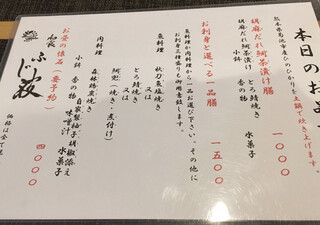 本日のお
熊本県菊池市産ひのひかりを土鍋で炊き上げます。
胡麻だれ鯛茶漬け膳 一〇〇〇
胡麻だれ鯛茶漬け とろ鯖焼き 水菓子
小鉢 香の物
お刺身と選べる一品膳 一五〇〇
魚料理か肉料理から一品お選び下さい。その他に
お刺身三種盛りも御用意致します。
魚料理 秋刀魚塩焼き
又は
とろ鯖焼き
又は
鯛兜(焼き・煮付け)
肉料理 森林鶏炭焼き
小鉢 自家製柚子胡椒添え
香の物 味噌汁 水菓子
お昼の懐石(要予約) 四〇〇〇
和食
ふじ教
価格は全て